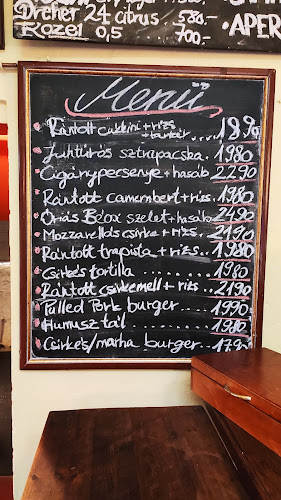 Dreher 24 citrus 580.-
Kozel 0,5 700.-
APER
Menü
Rántott cukkini + rizs + tartár ..... 1890
Juhtúrós sztrapacska.. 1980
Cigánypecsenye + hasáb 2290
Rántott camembert + rizs.. 1980
Óriás Bécsi szelet + hasáb 2490
Mozzarellás csirke + rizs... 2190
Rántott trapista + rizs... 1980
Csirkés tortilla ......... 1980
Rántott csirkemell + rizs.. 2190
Pulled Pork burger.... 1990
Humusz tál ............. 1980
Csirkés/marha burger.... 1790